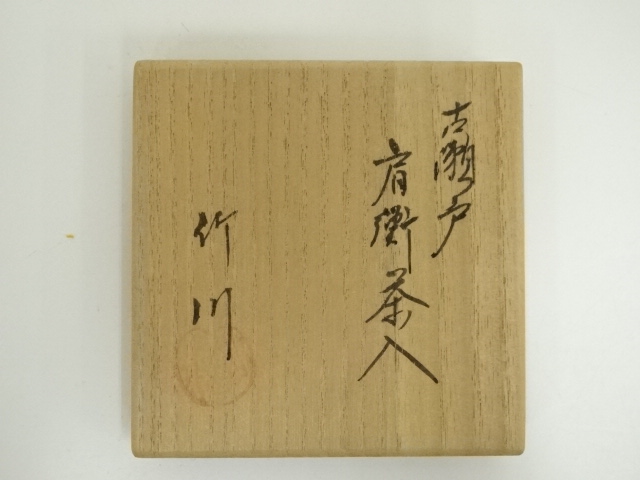 古瀬戸
肩衝茶入
竹川